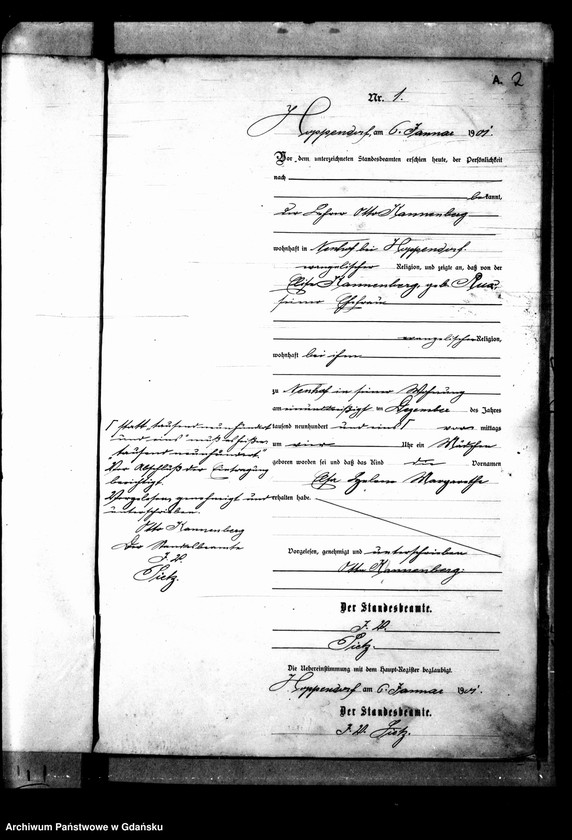 A. 2
Nr. 1.
Hoppendorf, am 6. Januar 1901.
Vor dem unterzeichneten Standesbeamten erschien heute, der Persönlichkeit
nach
bekannt,
der Lehrer Otto Kannenberg
wohnhaft in Neuhof bei Hoppendorf
evangelischer Religion, und zeigte an, daß von der
Kannenberg, geb.
seiner Ehefrau
evangelischer Religion,
wohnhaft bei ihm
zu Neuhof in seiner Wohnung
am einunddreißigsten Dezember des Jahres
tausend neunhundert und eins Γ vor mittags
um vier Uhr ein Mädchen
geboren worden sei und daß das Kind die Vornamen
Helene Margarethe
erhalten habe.
Γ statt "tausend neunhundert
und eins" muß es heißen
"tausend neunhundert".
Vor Abschluß der Eintragung
berichtigt.
Vorgelesen, genehmigt und
unterschrieben.
Otto Kannenberg
Der Standesbeamte
J. V.
Pietz.
Vorgelesen, genehmigt und unterschrieben
Otto Kannenberg.
Der Standesbeamte.
J. V.
Pietz.
Die Uebereinstimmung mit dem Haupt-Register beglaubigt.
Hoppendorf am 6. Januar 1901.
Der Standesbeamte.
J. V. Pietz.
Archiwum Państwowe w Gdańsku